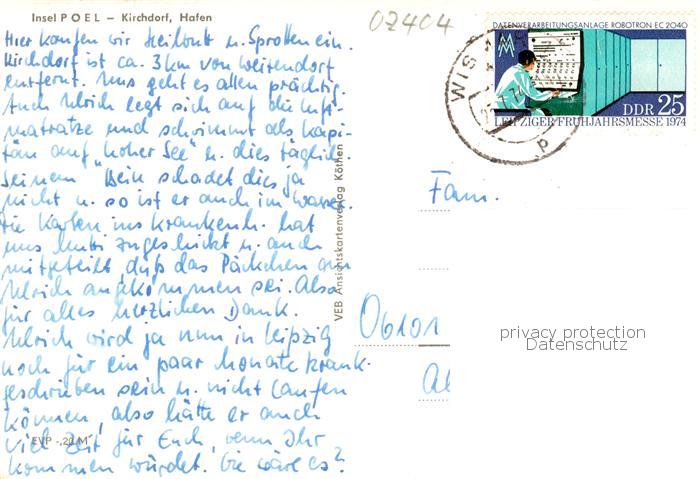 Insel POEL – Kirchdorf, Hafen
02404
DATENVERARBEITUNGSANLAGE ROBOTRON EC 2040
DDR 25
LEIPZIGER FRÜHJAHRSMESSE 1974
WIS
Hier kaufen wir Heilbutt u. Sprotten ein.
Kirchdorf ist ca. 3 km von Weitendorf
entfernt. Uns geht es allen prächtig.
Auch Ulrich legt sich auf die Luft-
matratze und schwimmt als Kapi-
tän auf "hoher See" u. dies täglich.
Seinem Bein schadet dies ja
nicht u. so ist er auch im Wasser.
Die Karten ins Krankenh. hat
uns zugeschickt u. auch
mitgeteilt daß das Päckchen an
Ulrich angekommen sei. Also
für alles herzlichen Dank.
Ulrich wird ja nun in Leipzig
noch für ein paar Monate krank-
geschrieben sein u. nicht laufen
können, also hätte er auch
viel Zeit für Euch, wenn Ihr
kommen würdet. Wie wäre es?
EVP -,20 M
VEB Ansichtskartenverlag Köthen
Fam.
06101
privacy protection
Datenschutz